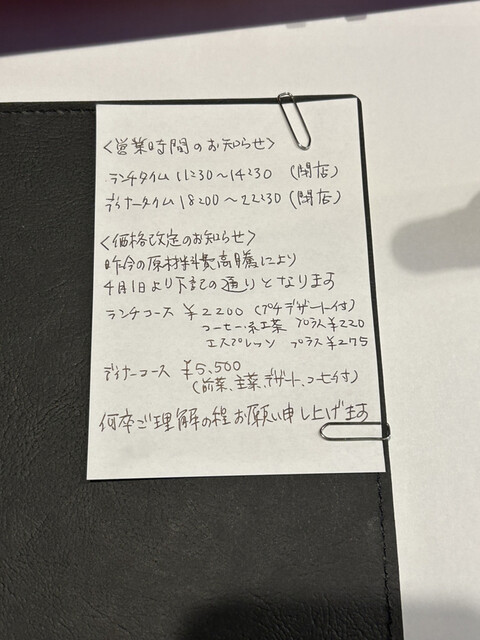 <営業時間のお知らせ>
ランチタイム 11:30〜14:30 (閉店)
ディナータイム 18:00〜22:30 (閉店)
<価格改定のお知らせ>
昨今の原材料費高騰により
4月1日より下記の通りとなります
ランチコース ¥2200 (プチデザート付)
コーヒー・紅茶 プラス¥220
エスプレッソ プラス¥275
ディナーコース ¥5,500
(前菜、主菜、デザート、コーヒー付)
何卒ご理解の程お願い申し上げます